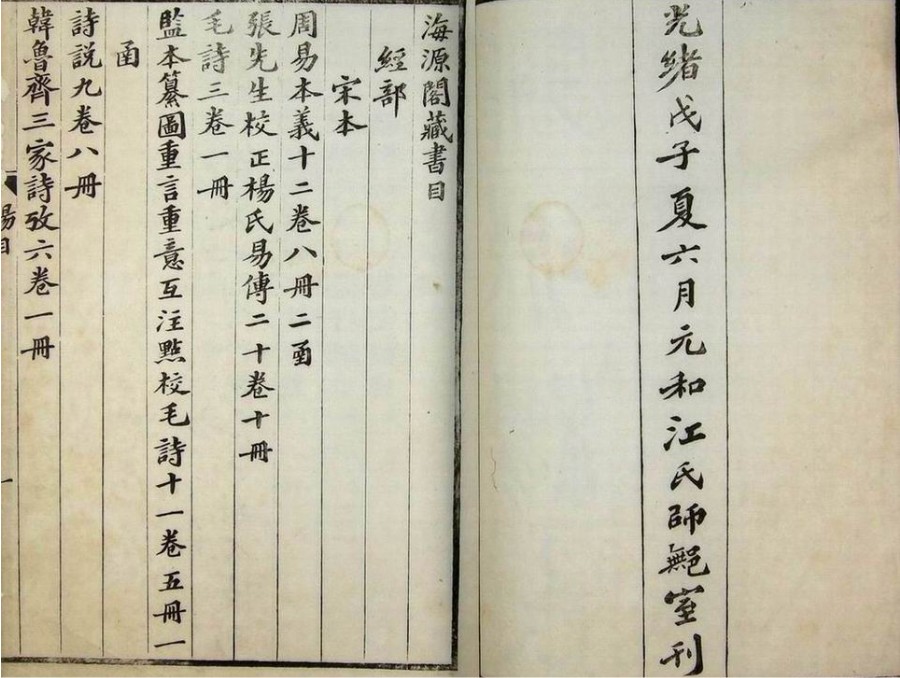 光緒戊子夏六月元和江氏師鄦室刊
海源閣藏書目
經部
宋本
周易本義十二卷八冊二函
張先生校正楊氏易傳二十卷十冊
毛詩三卷一冊
監本纂圖重言重意互注點校毛詩十一卷五冊一
函
詩説九卷八冊
韓魯齊三家詩攷六卷一冊
楊目
一